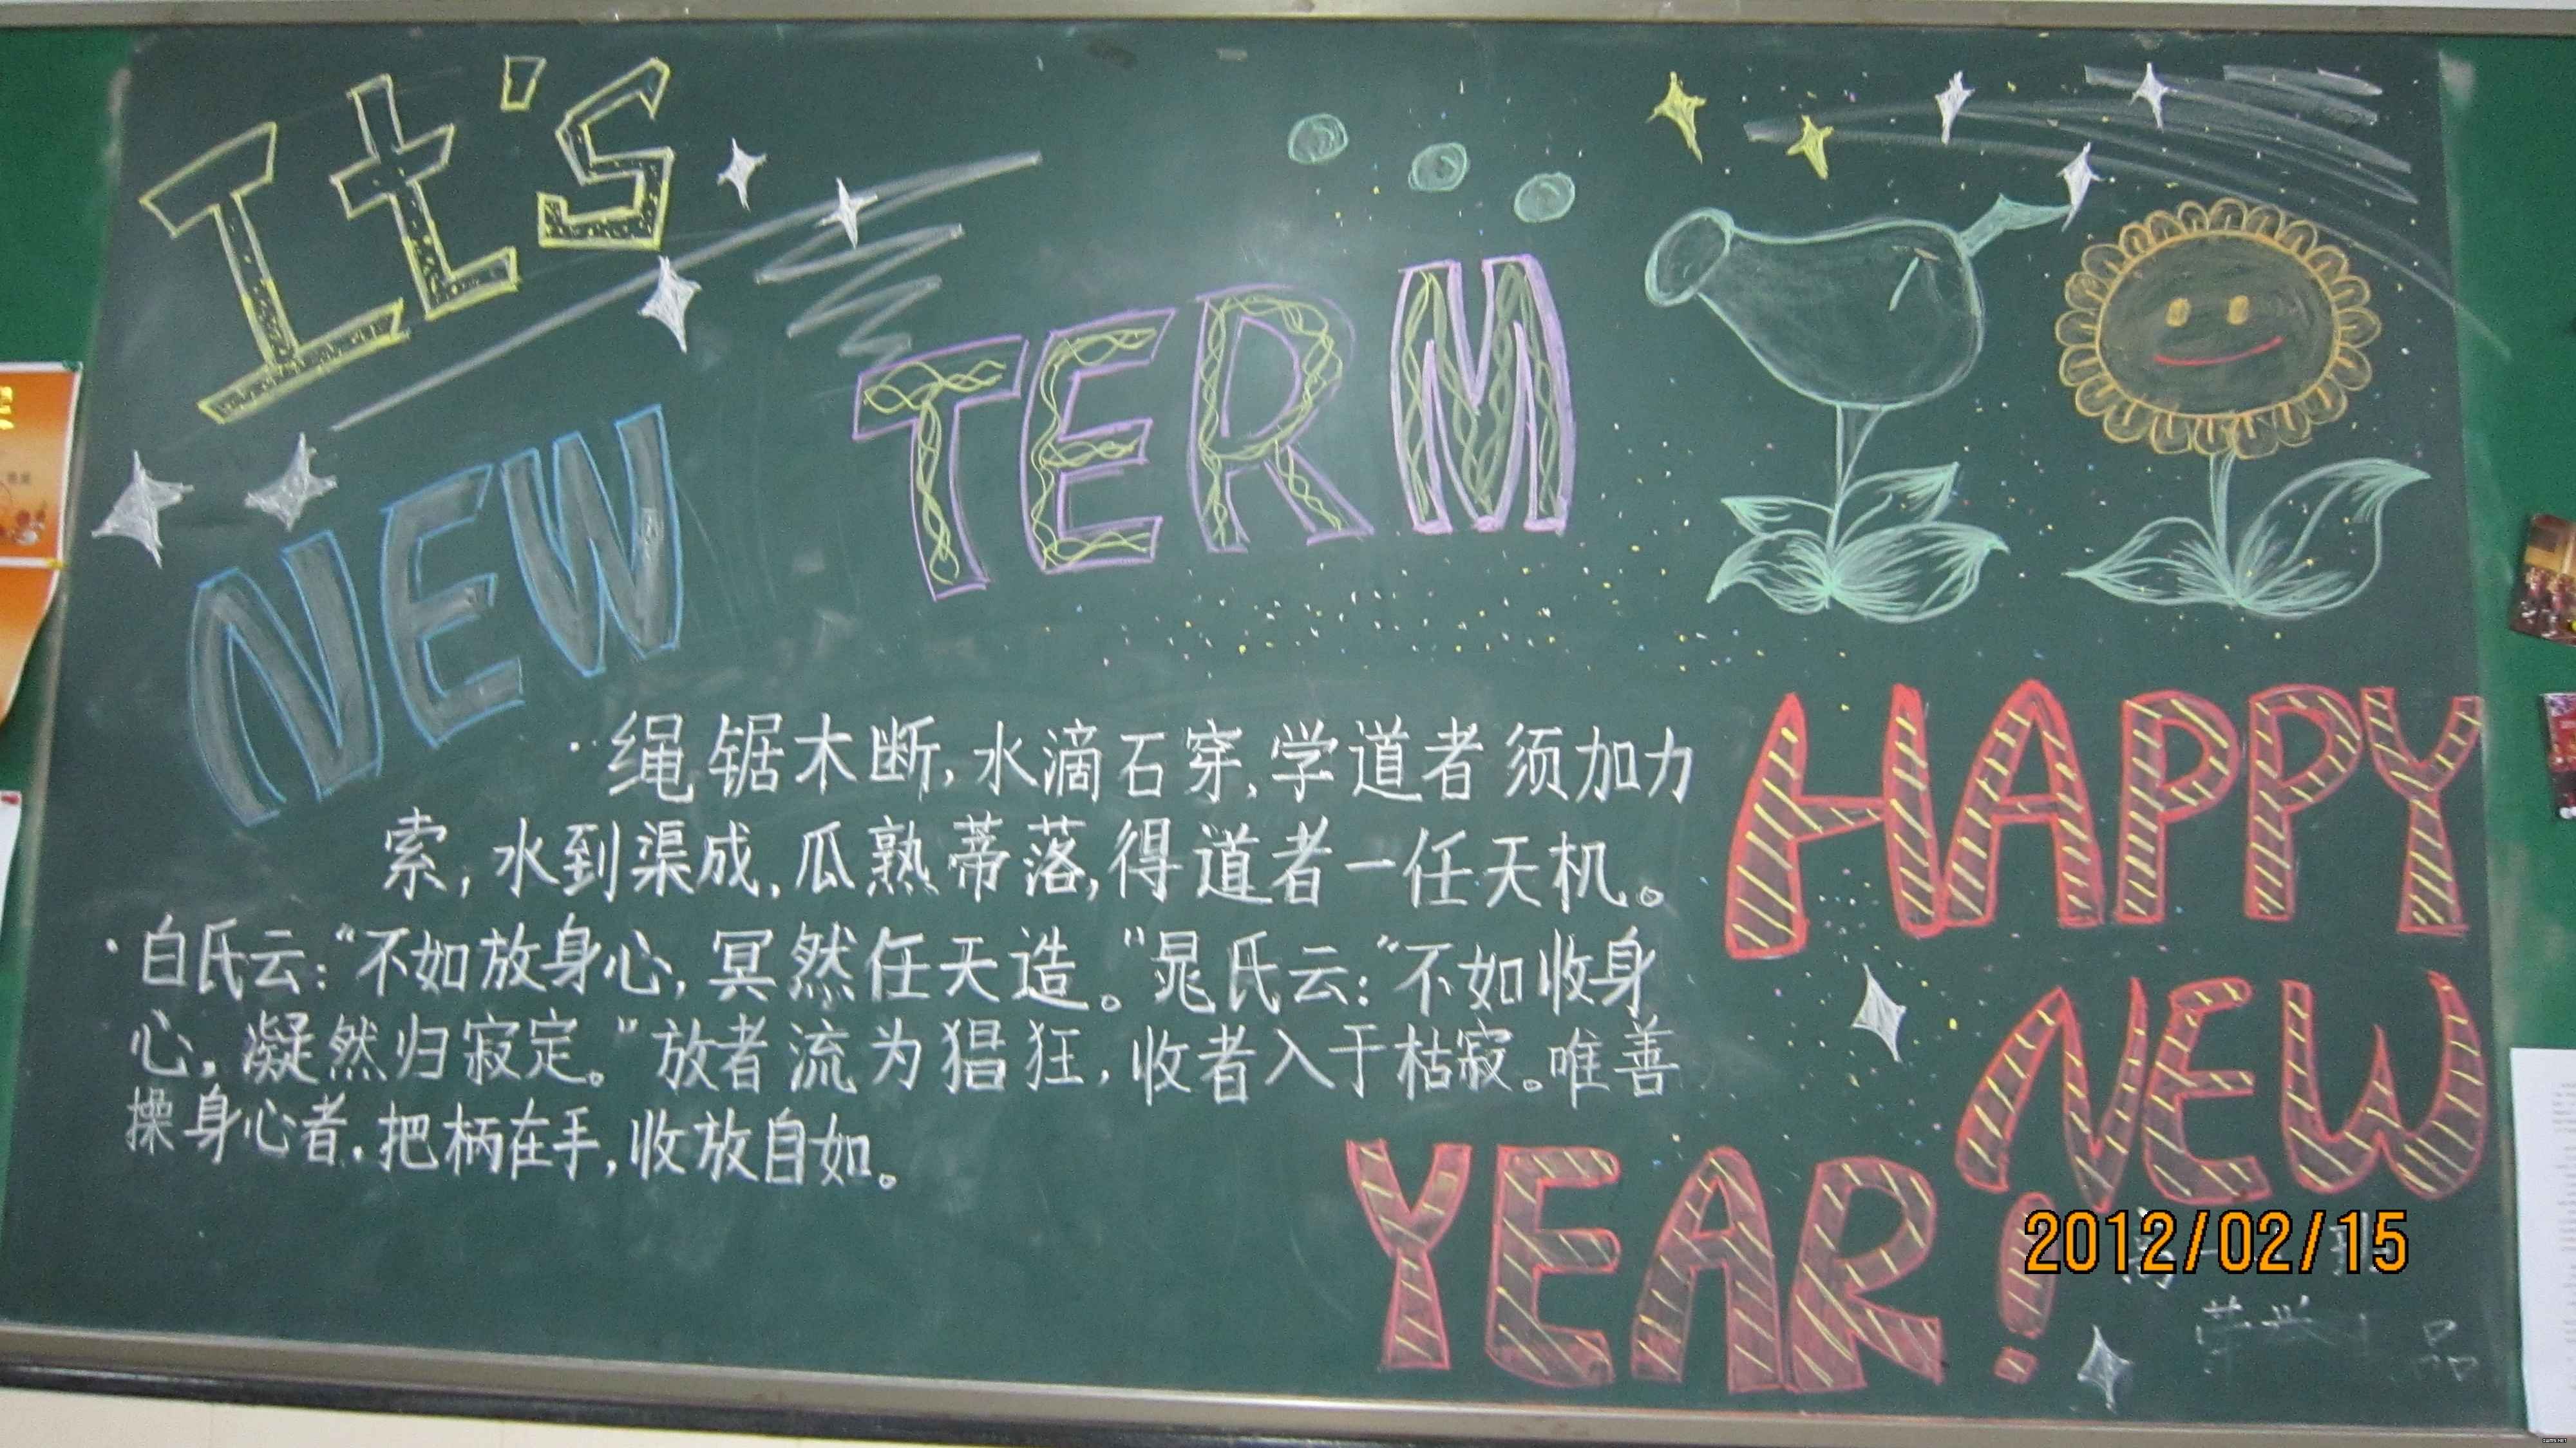 It's
NEW TERM
·绳锯木断,水滴石穿,学道者须加力
索,水到渠成,瓜熟蒂落,得道者一任天机。
·白氏云:"不如放身心,冥然任天造。"晁氏云:"不如收身
心,凝然归寂定。"放者流为猖狂,收者入于枯寂。唯善
操身心者,把柄在手,收放自如。
HAPPY
NEW
YEAR!
2012/02/15
品